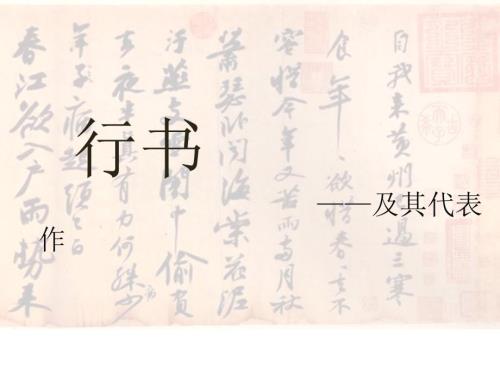 行书
——及其代表
作
自我來黃州已過三寒
食年、欲惜春、去不
容惜今年又苦雨兩月秋
蕭瑟卧聞海棠花泥
汙燕支雪闇中偷負
去夜半真有力何殊少
年子病起頭已白
春江欲入户雨勢來